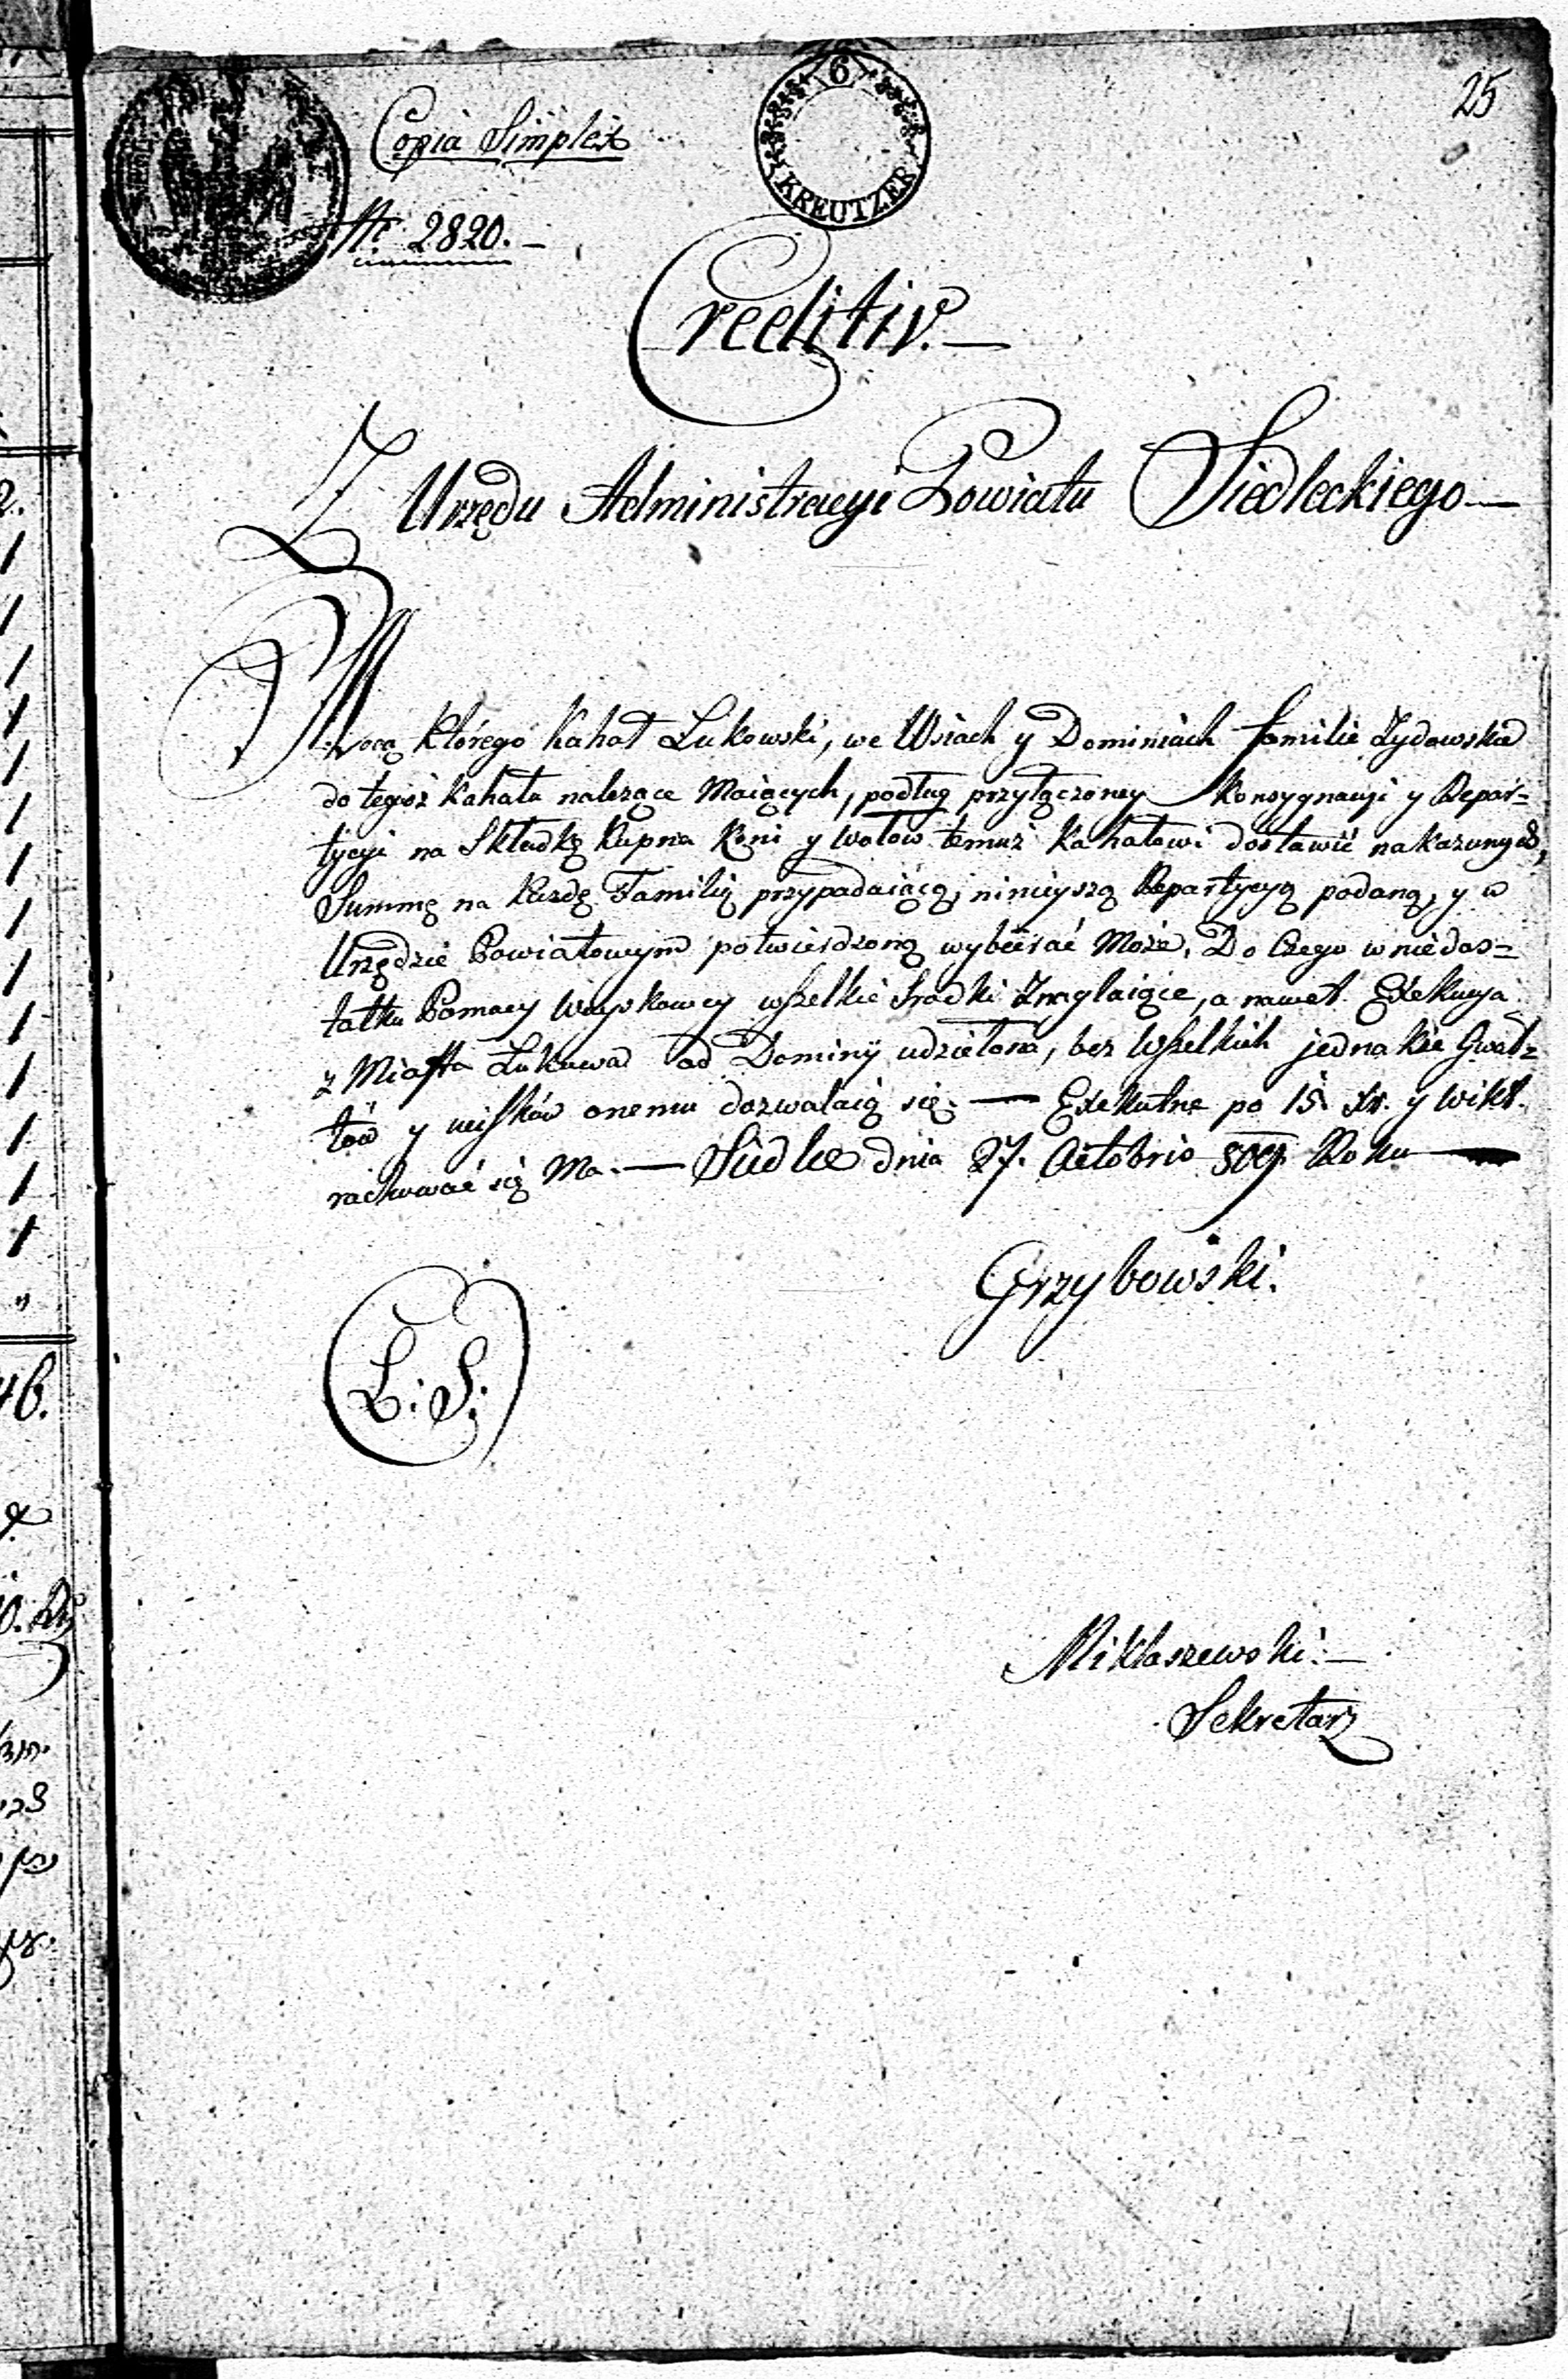 25
Copia Simplex
6
KREUTZER
Nr. 2820.
Creditiv.
Z Urzędu Administracyi Powiatu Siedleckiego
Mocą którego Kahał Łukowski, we Wsiach y Dominiach familie Żydowskie
do tegoż Kahału należące Maiących, podług przyłączoney Konsygnacyi y Repar=
tycyi na Składkę Kupna Koni y Wołów temuż Kahałowi dostawić nakazanych,
Summę na Każdę Familię przypadaiącą, ninieyszą Repartycyą podaną, y w
Urzędzie Powiatowym potwierdzoną wybierać Może. Do Czego w niedos=
tatku Pomocy Woyskowey wszelkie Srodki, a nawet Exekucya
z Miasta Łukowa od Dominij udzielona, bez Wszelkich jednakże Gwał=
tów y ucisków onemu dozwalaią się. — Exekutne po 15. Xr. y wikt.
rachować się Ma. — Siedlce dnia 27. Octobris 809. Roku
Grzybowski.
L: S:
Mikłaszewski.
Sekretarz
46.